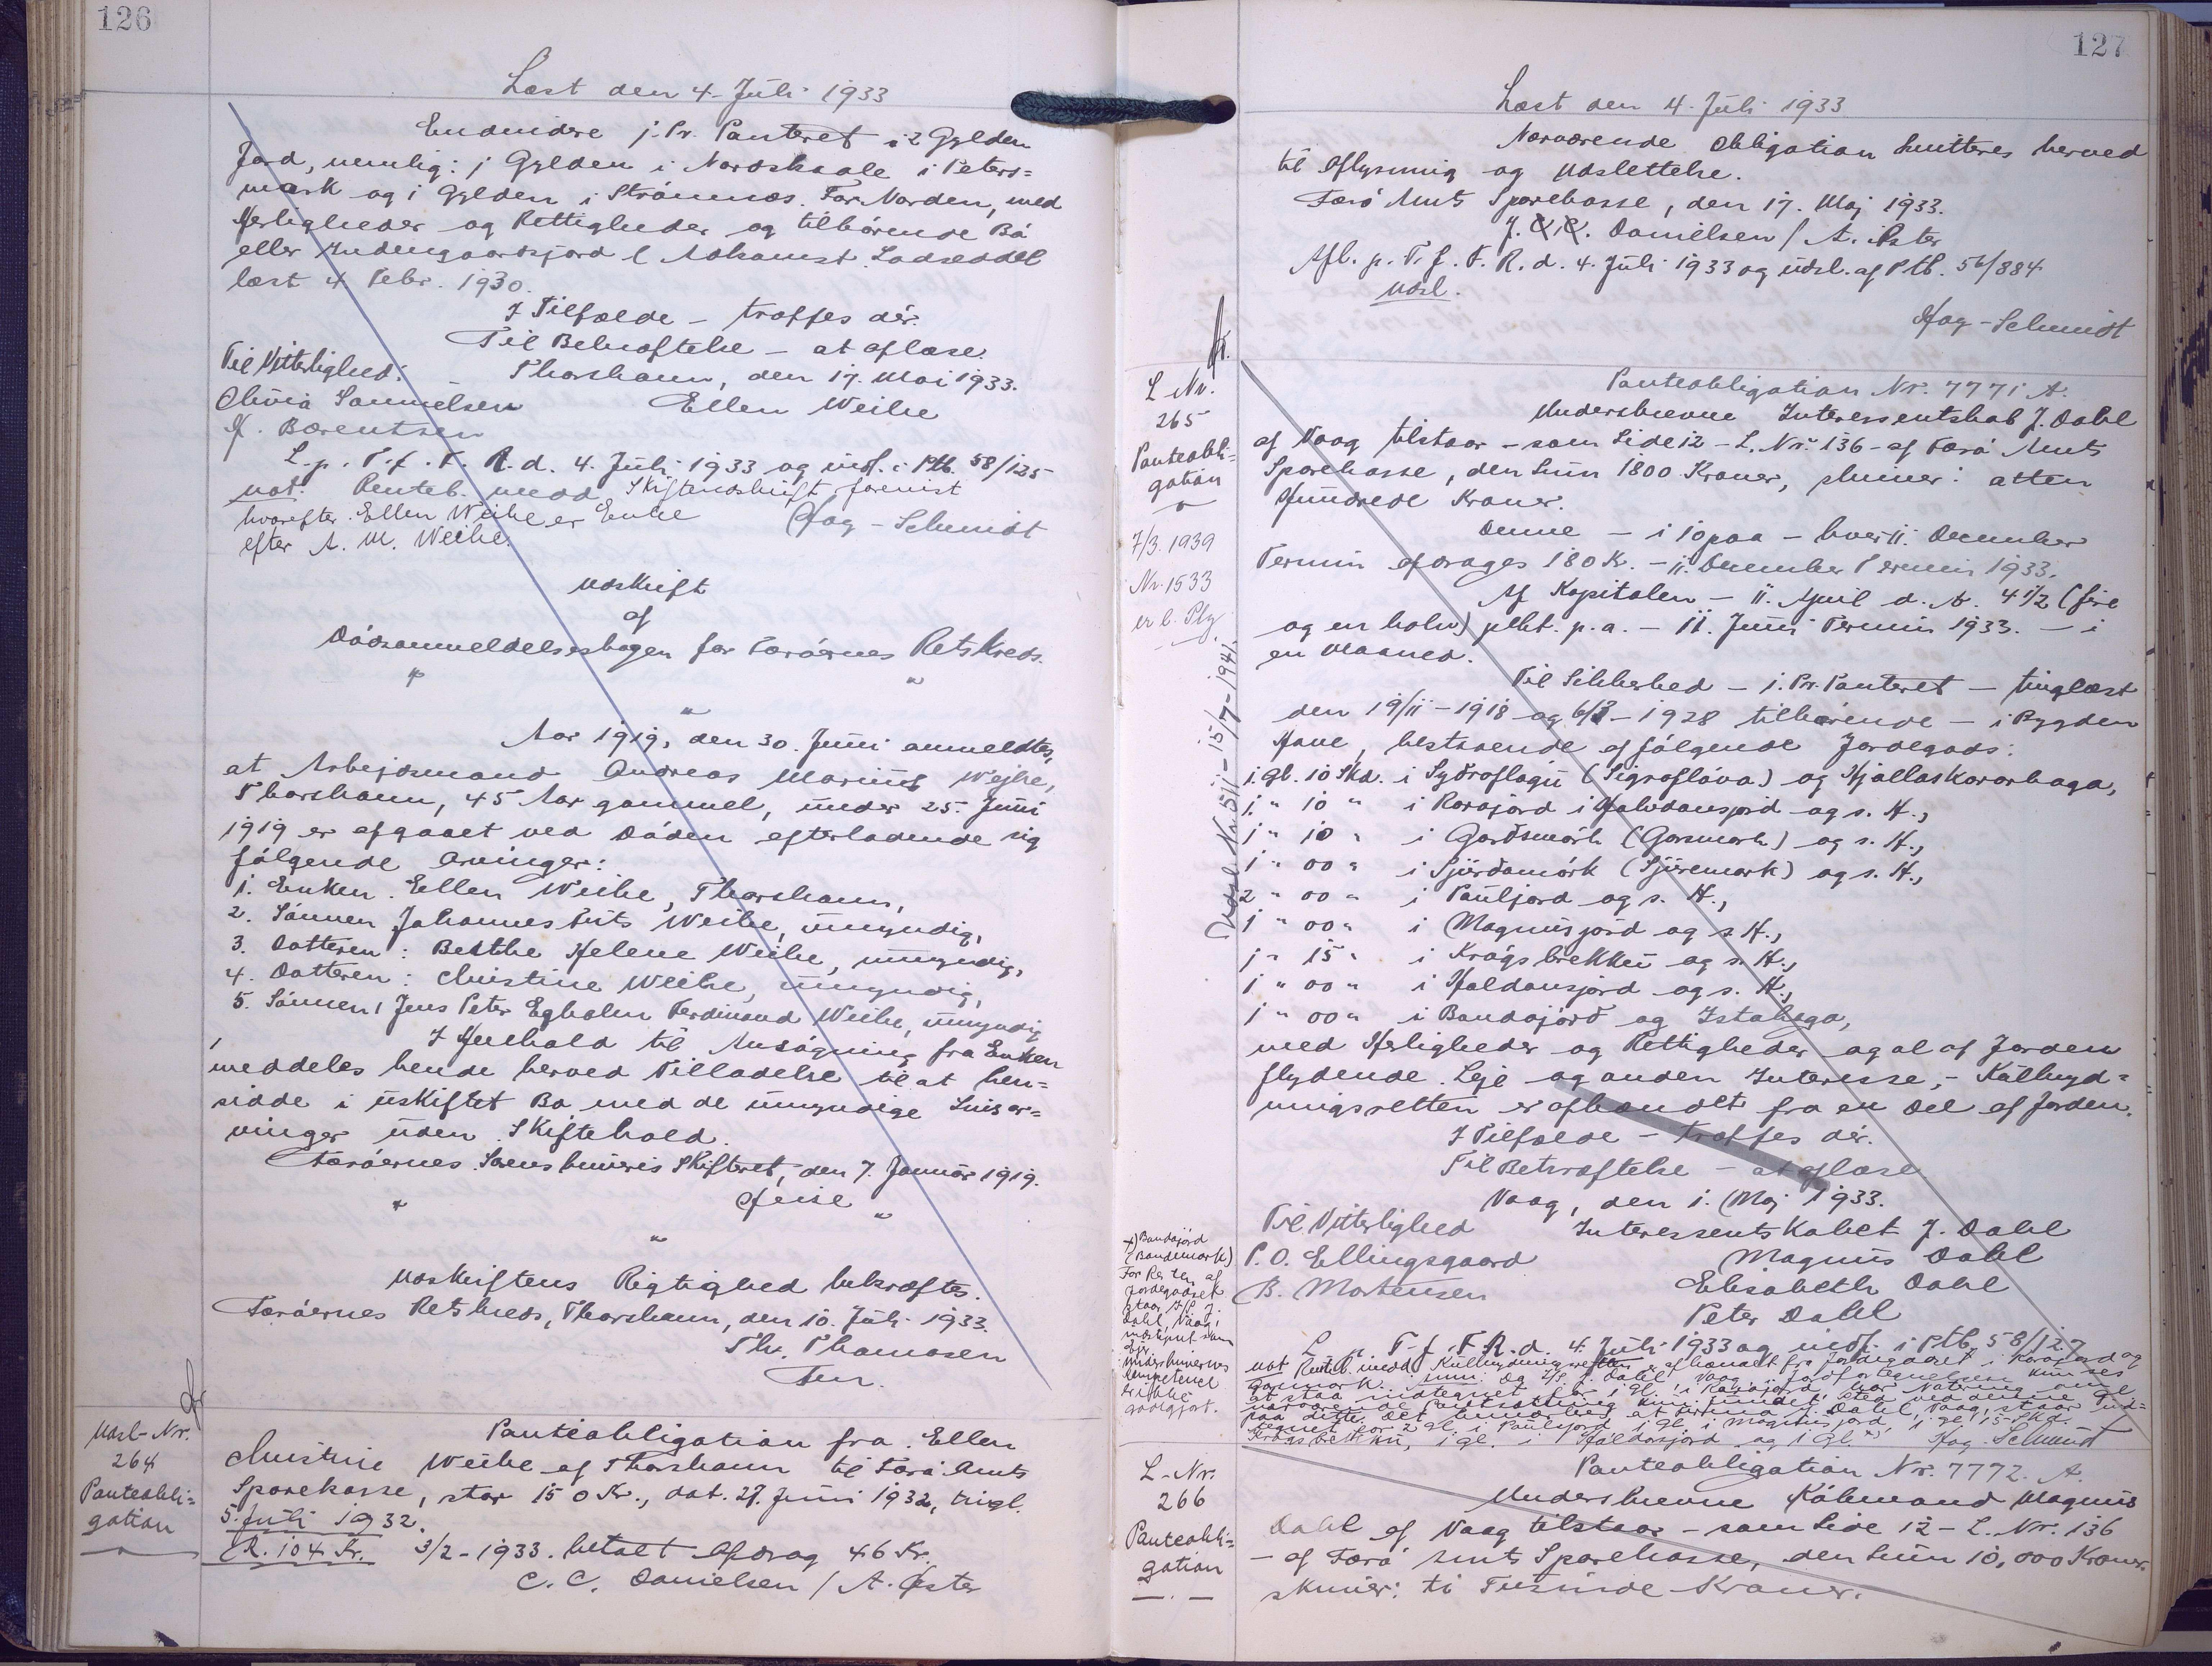 126
Læst den 4. Juli 1933
Endvidere j. Pr. Panteret i 2 Gylden
Jord, nemlig: 1 Gylden i Nordskaale i Peters=
mark og 1 Gylden i Strömnæs For Norden, med
Herligheder og Rettigheder og tilhörende Bö
eller Indengaardsjord (Adkomst Lodseddel
læst 4 Febr. 1930.
I Tilfælde – træffes dér.
Til Bekræftelse – at aflæse.
Thorshavn, den 17. Mai 1933.
Til Vitterlighed:
Olivia Samuelsen
Ellen Weihe
H. Bærentsen
L. p. T. f. F. R. d. 4. Juli 1933 og indf. i Ptb. 58/125
not. Panteb. medd. Skifteudskrift forevist
hvorefter Ellen Weihe er Enke
efter A. M. Weihe.
Hag-Schmidt
Udskrift
af
Dödsanmeldelsesbogen for Færöernes Retskreds.
Aar 1919, den 30. Juni anmeldtes,
at Arbejdsmand Andreas Marius Wejhe,
Thorshavn, 45 Aar gammel, under 25. Juni
1919 er afgaaet ved Döden efterladende sig
fölgende Arvinger:
1. Enken Ellen Weihe, Thorshavn,
2. Sönnen Johannes Weihe, umyndig,
3. Datteren: Berthe Helene Weihe, umyndig,
4. Datteren: Christine Weihe, umyndig,
5. Sönnen, Jens Peter Egholm Ferdinand Weihe, umyndig
I Henhold til Ansögning fra Enken
meddeles hende herved Tilladelse til at hen=
sidde i uskiftet Bo med de umyndige Livsar=
vinger uden Skiftehold.
Færöernes Sorenskriveris Skifteret, den 7. Januar 1919.
Udskriftens Rigtighed bekræftes.
Færöernes Retskreds, Thorshavn, den 10. Juli 1933.
Th. Thomasen
Fm.
Udsl-Nr.
264
Panteobli=
gation
Panteobligation fra Ellen
Christine Weihe af Thorshavn til Færö Amts
Sparekasse, stor 150 Kr., dat. 27. Juni 1932, tingl.
5. Juli 1932.
(R. 104 Kr. 3/2-1933. betalt Afdrag 46 Kr.
C. C. Danielsen / A. Öster
127
Læst den 4. Juli 1933
Nærværende Obligation kvitteres herved
til Aflysning og Udslettelse.
Færö Amts Sparekasse, den 17. Maj 1933.
J. C. C. Danielsen / A. Öster
Afl. p. T. f. F. R. d. 4. Juli 1933 og udsl. af Ptb. 56/884
Udsl.
Hag-Schmidt
L-Nr.
265
Panteobli=
gation
7/3. 1939
Nr. 1533
Udsl. Nr. 511 - 15/7-1941.
Panteobligation Nr. 7771 A.
Underskrevne Interessentskab J. Dahl
af Vaag tilstaar – som Side 12 – L. Nr. 136 – af Færö Amts
Sparekasse, den Sum 1800 Kroner, skriver: atten
Hundrede Kroner.
Denne – i 10 paa – hver 11. December
Termin afdrages 180 Kr. – 11. December Termin 1933.
Af Kapitalen – 11. April d. A. 4 1/2 (fire
og en halv) pCt. p. a. – 11. Juni Termin 1933. – i
en Maaned.
Til Sikkerhed – 1. Pr. Panteret – tinglæst
den 19/11-1918 og 6/3-1928 tilhörende – i Bygden
Hove, bestaaende af fölgende Jordegods:
1. Gl. 10 Skd. i Sydrofløgu (Sigroflöva) og Hjallaskorarhaga,
1 " 10 " i Rorajörd i Halvdansjord og s. H.,
1 " 10 " i Gardsmörk (Gorsmark) og s. H.,
1 " 00 " i Sjúrdamörk (Sjúremark) og s. H.,
2 " 00 " i Pauljord og s. H.,
1 " 00 " i Magnusjord og s. H.,
1 " 15 " i Krógsbrekku og s. H.,
1 " 00 " i Haldansjord og s. H.,
1 " 00 " i Bondajörd og Istahaga,
med Herligheder og Rettigheder og al af Jorden
flydende Leje og anden Interesse, – Kulbryd=
ningsretten er afhændet fra en Del af Jorden.
I Tilfælde – træffes dér.
Til Bekræftelse – at aflæse
Vaag, den 1. Maj 1933.
Til Vitterlighed
Interessentskabet J. Dahl
P. O. Ellingsgaard
Magnus Dahl
B. Mortensen
Elisabeth Dahl
Peter Dahl
L. p. T. f. F. R. d. 4. Juli 1933 og indf. i Ptb. 58/127
not Panteb. medd Kulbrydningsretten er afhændet fra Jordegodset i Rorajord og
Gorsmark
paa dette. Det bemærkes at Firma J. Dahl, Vaag, staar Ind=
tegnet for 2 gl. i Pauljord, 1 gl. i Magnusjord, 1 gl. 15 Skd.
Krogsbrekku, 1 gl. i Haldansjord og 1 Gl. x)
Hag-Schmidt
x) Bondajörd
(Bondemark)
For Resten af
Jordegodset
staar I/S J.
Dahl, Vaag,
indtegnet som
Ejer
Underskrivernes
Kompetence
er ikke
godtgjort.
L-Nr.
266
Panteobli=
gation
Panteobligation Nr. 7772. A.
Underskrevne Köbmand Magnus
Dahl af Vaag tilstaar – som Side 12 – L. Nr. 136
– af Færö Amts Sparekasse, den Sum 10,000 Kroner.
skriver: ti Tusinde Kroner.